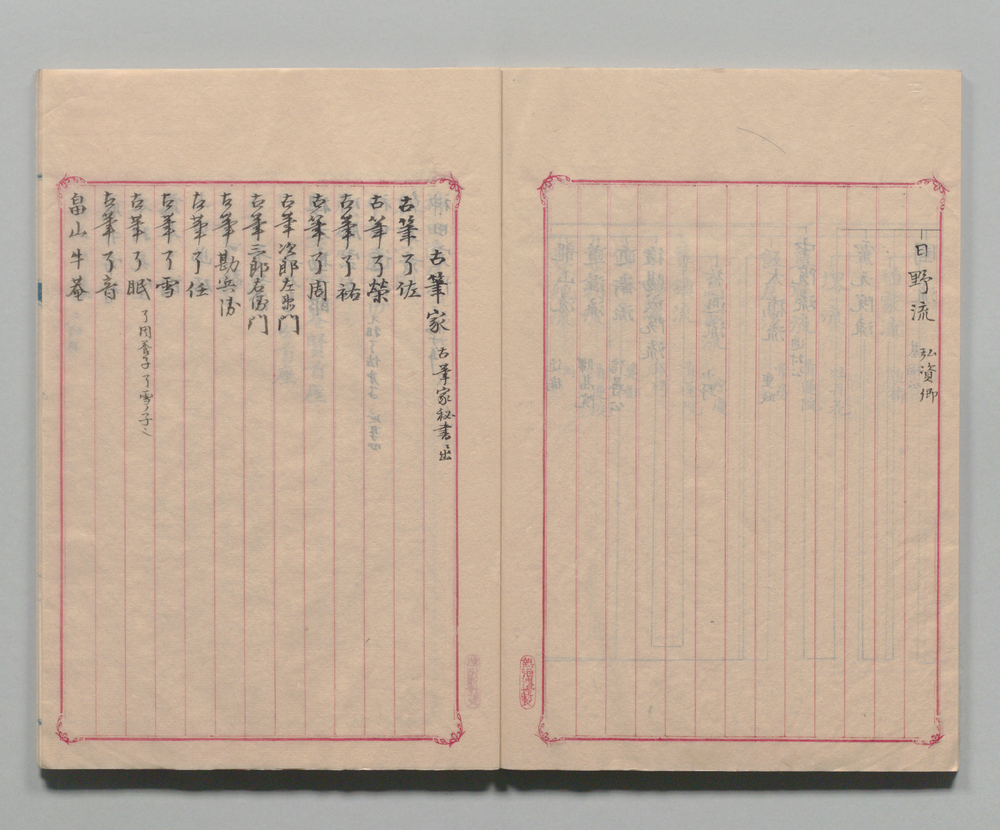 日野流 弘資卿
古筆家 古筆家秘書ニ出
古筆了佐
古筆了榮
古筆了祐
古筆了周
古筆次郎左衛門
古筆三郎右衛門
古筆勘兵衛
古筆了任
古筆了雪
古筆了眠 了周養子 了雪ノ子ニ
古筆了音
畠山牛菴